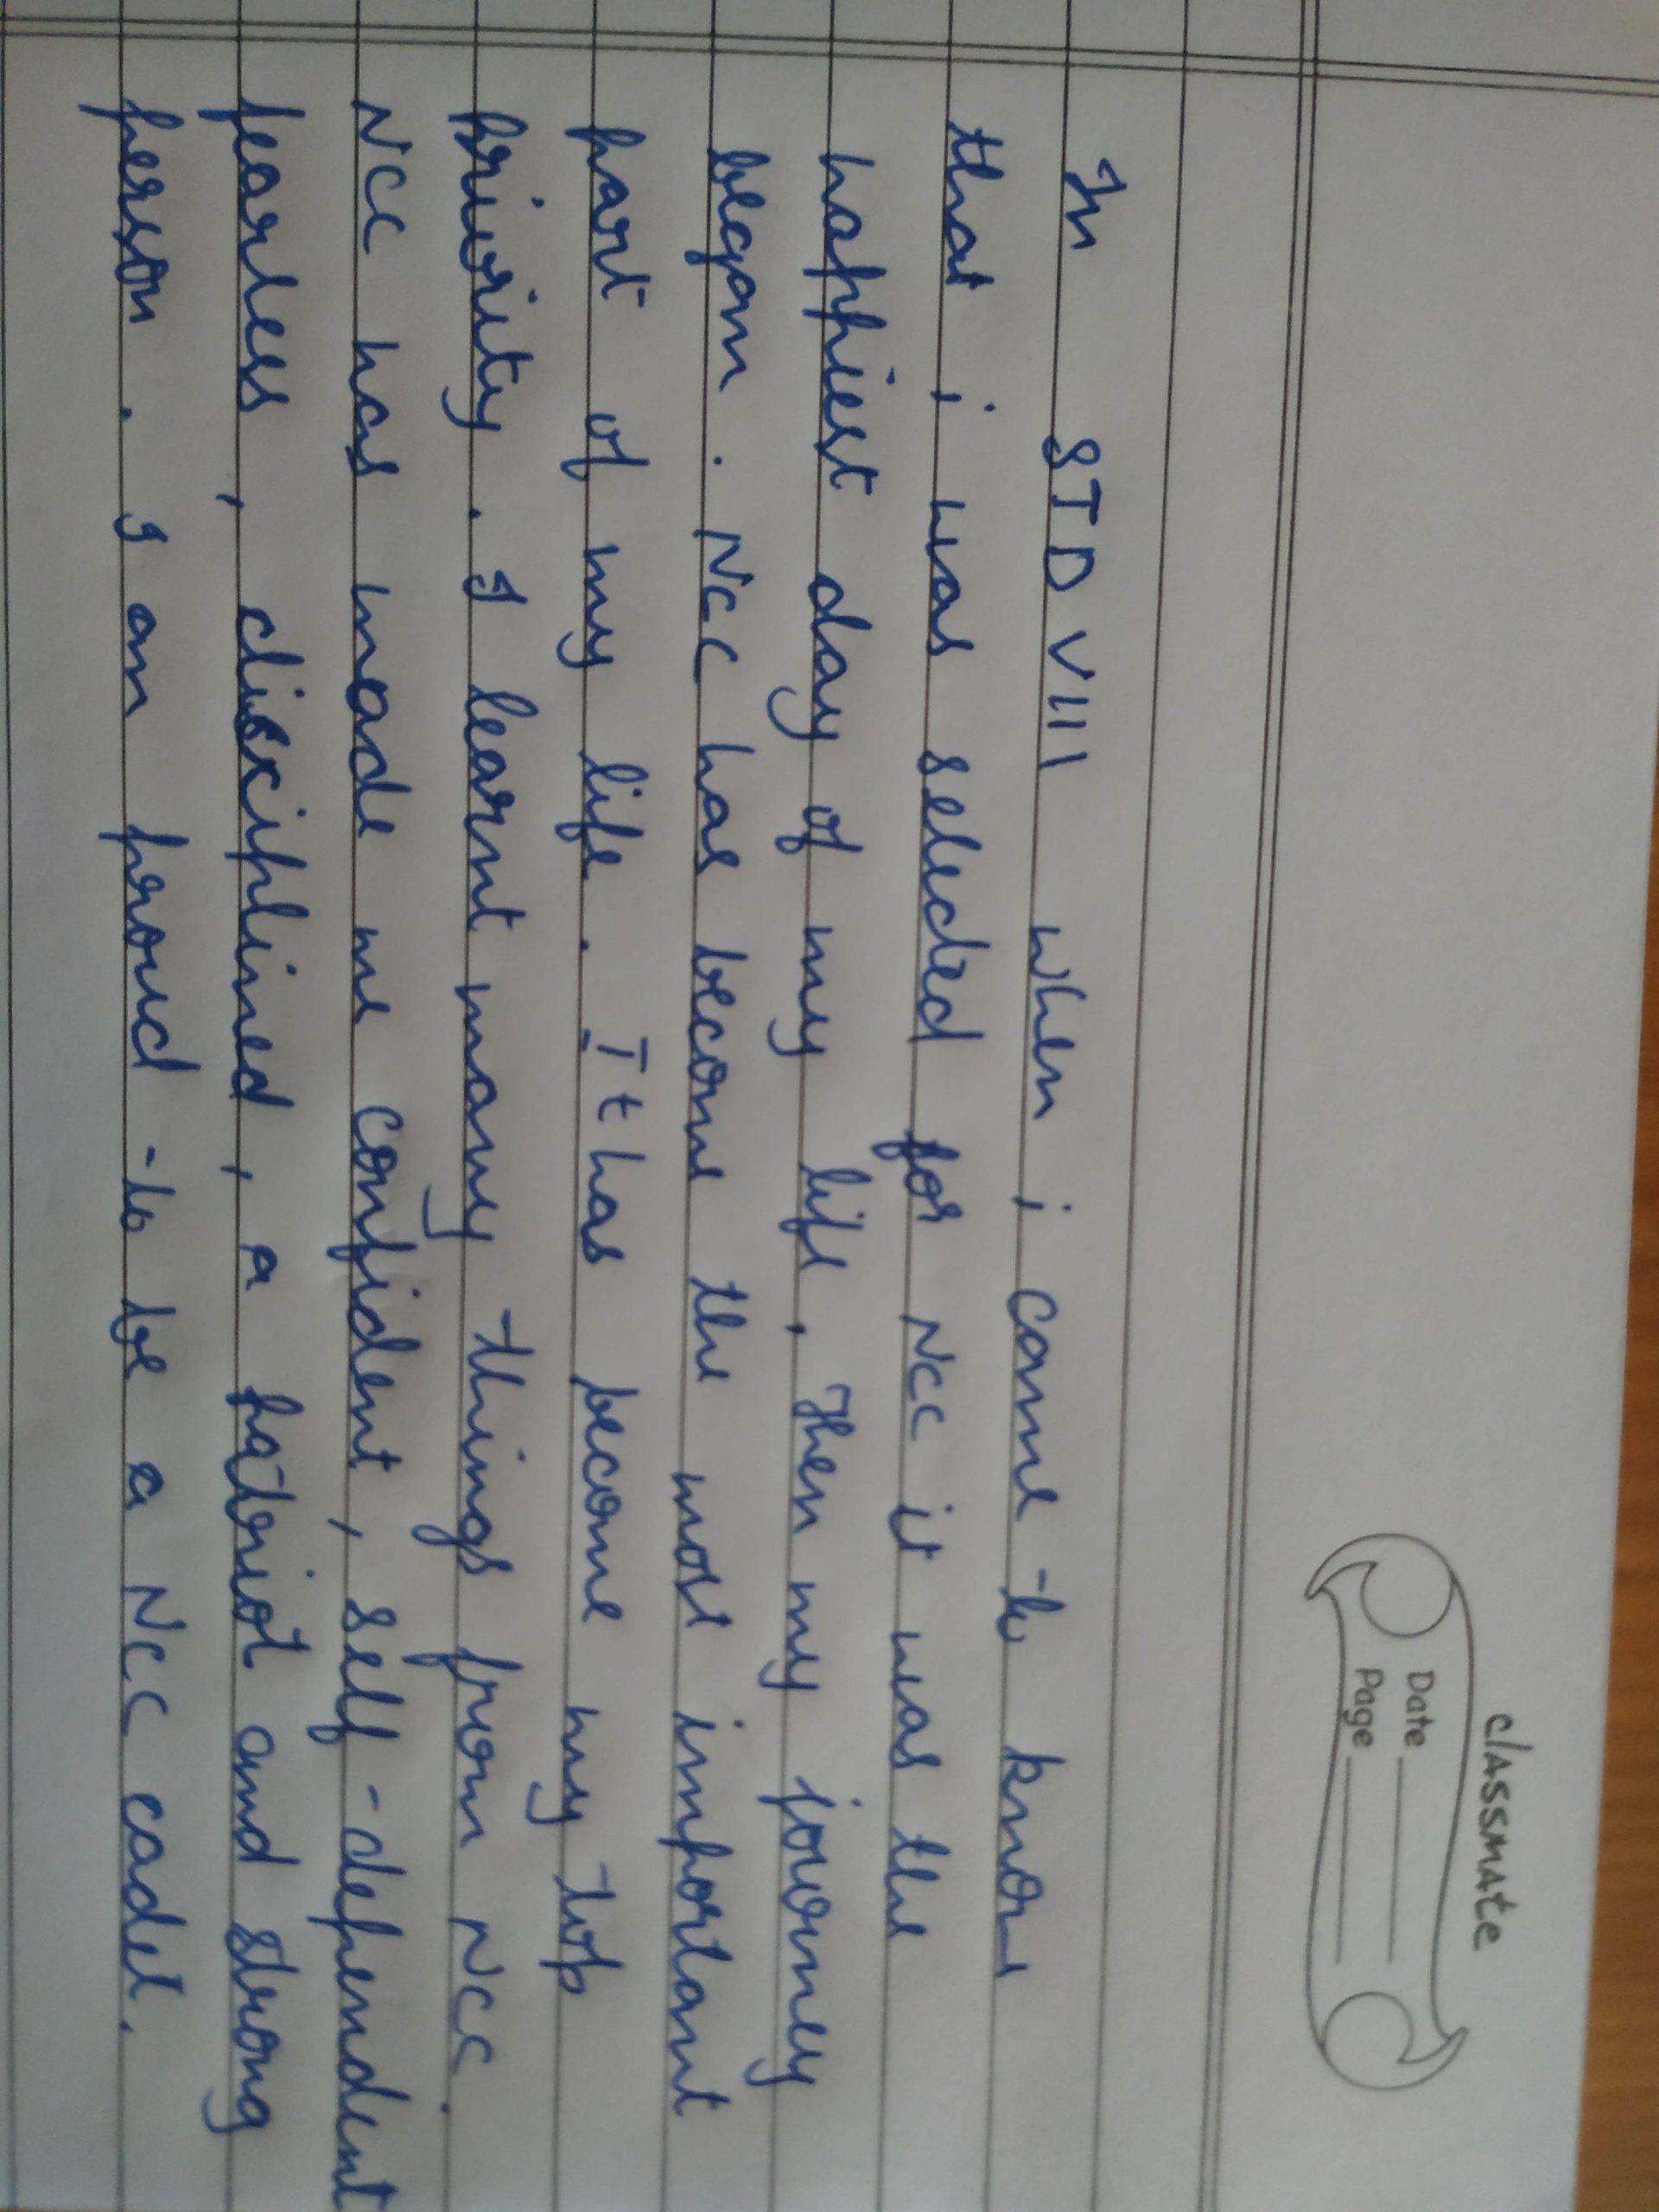 classmate
Date
Page
In STD VIII when i came to know
that i was selected for NCC it was the
happiest day of my life. Then my journey
began. NCC has become the most important
part of my life. It has become my top
priority. I learnt many things from NCC.
NCC has made me confident, self-dependent
fearless, disciplined, a patriot and strong
person. I am proud to be a NCC cadet.